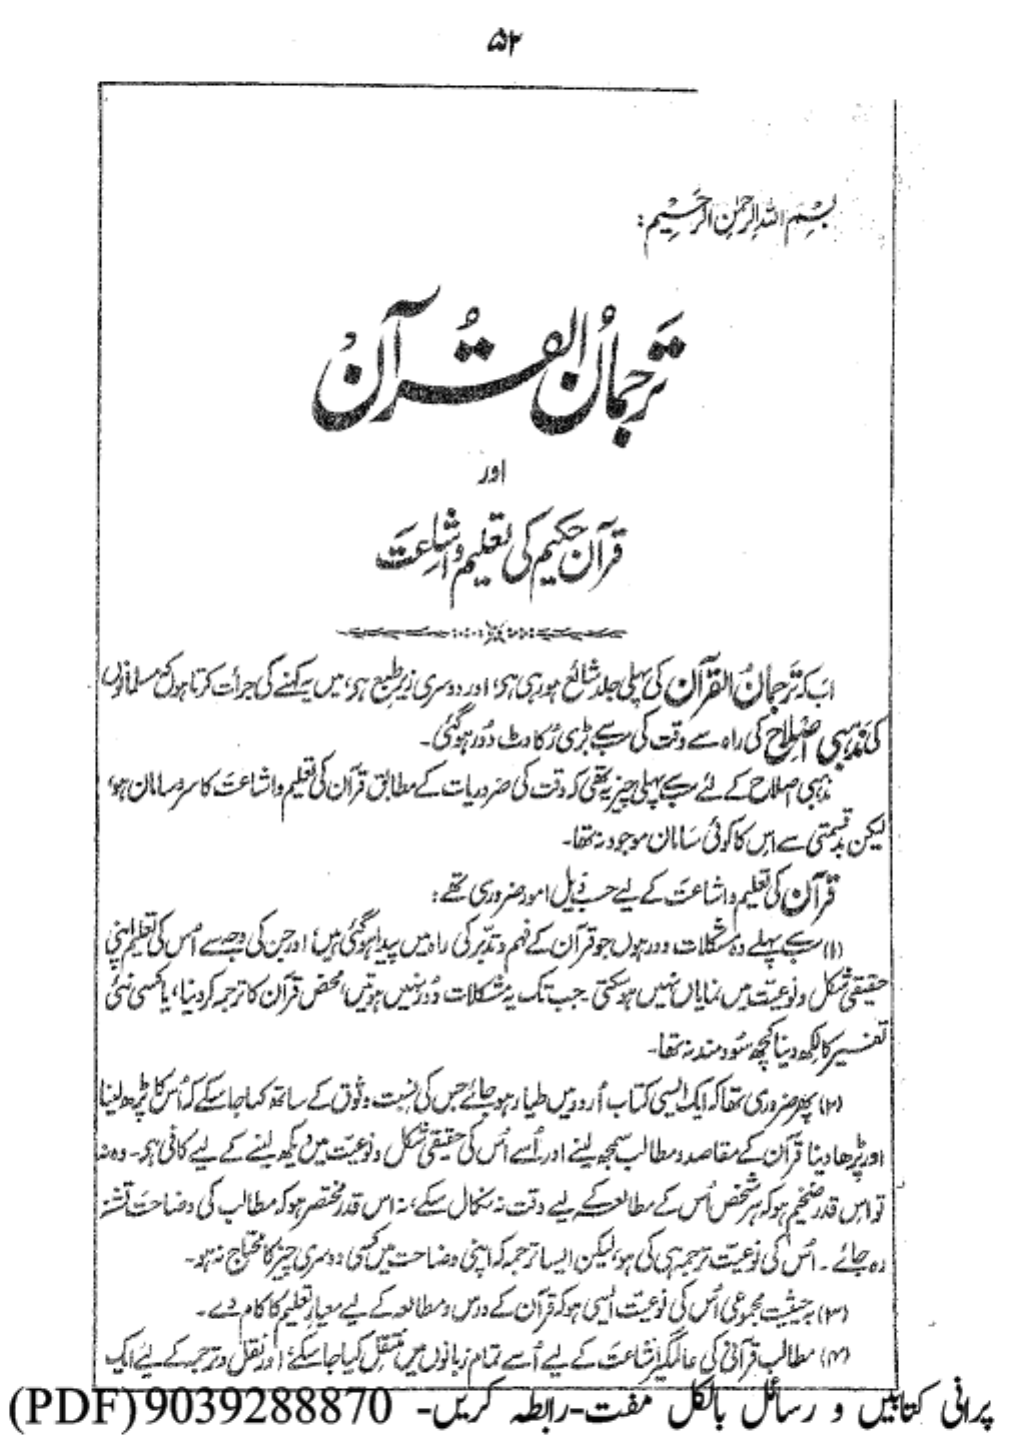 ۵۲
بِسْمِ اللہِ الرَّحْمٰنِ الرَّحِیْمِ:
ترجمانُ القُرآن
اور
قرآن حکیم کی تعلیم و اشاعت
اب کہ ترجمانُ القرآن کی پہلی جلد شائع ہو رہی ہی، اور دوسری زیرِ طبع ہی، میں یہ کہنے کی جرأت کرتا ہوں کہ مسلمانوں
کی مذہبی اصلاح کی راہ سے وقت کی سب سے بڑی رُکاوٹ دور ہوگئی۔
مذہبی اصلاح کے لئے سب سے پہلی چیز یہ تھی کہ وقت کی ضروریات کے مطابق قرآن کی تعلیم و اشاعت کا سروسامان ہو،
لیکن بدقسمتی سے اس کا کوئی سامان موجود نہ تھا۔
قرآن کی تعلیم و اشاعت کے لیے حسب ذیل امور ضروری تھے:
(۱) سب سے پہلے وہ مشکلات دور ہوں جو قرآن کے فہم و تدبّر کی راہ میں پیدا ہوگئی ہیں، اور جن کی وجہ سے اُس کی تعلیم اپنی
حقیقی شکل و نوعیت میں نمایاں نہیں ہو سکتی۔ جب تک یہ مشکلات دُور نہیں ہوتیں، محض قرآن کا ترجمہ کر دینا، یا کسی نئی
تفسیر کا لکھ دینا کچھ سُود مند نہ تھا۔
(۲) پھر ضروری تھا کہ ایک ایسی کتاب اُردو میں طیار ہو جائے جس کی نسبت وثوق کے ساتھ کہا جا سکے کہ اُس کا پڑھ لینا
اور پڑھا دینا قرآن کے مقاصد و مطالب سمجھ لینے اور اُسے اُس کی حقیقی شکل و نوعیت میں دیکھ لینے کے لیے کافی ہی۔ وہ نہ
تو اس قدر ضخیم ہو کہ ہر شخص اُس کے مطالعہ کے لیے وقت نہ نکال سکے، نہ اس قدر مختصر ہو کہ مطالب کی وضاحت تشنہ
رہ جائے۔ اُس کی نوعیت ترجمہ ہی کی ہو، لیکن ایسا ترجمہ کہ اپنی وضاحت میں کسی دوسری چیز کا محتاج نہ ہو۔
(۳) بہ حیثیت مجموعی اُس کی نوعیت ایسی ہو کہ قرآن کے درس و مطالعہ کے لیے معیارِ تعلیم کا کام دے۔
(۴) مطالب قرآنی کی عالمگیر اشاعت کے لیے اُسے تمام زبانوں میں منتقل کیا جا سکے، اور نقل و ترجمہ کے لیے ایک
پرانی کتابیں و رسائل بالکل مفت-رابطہ کریں- 9039288870 (PDF)